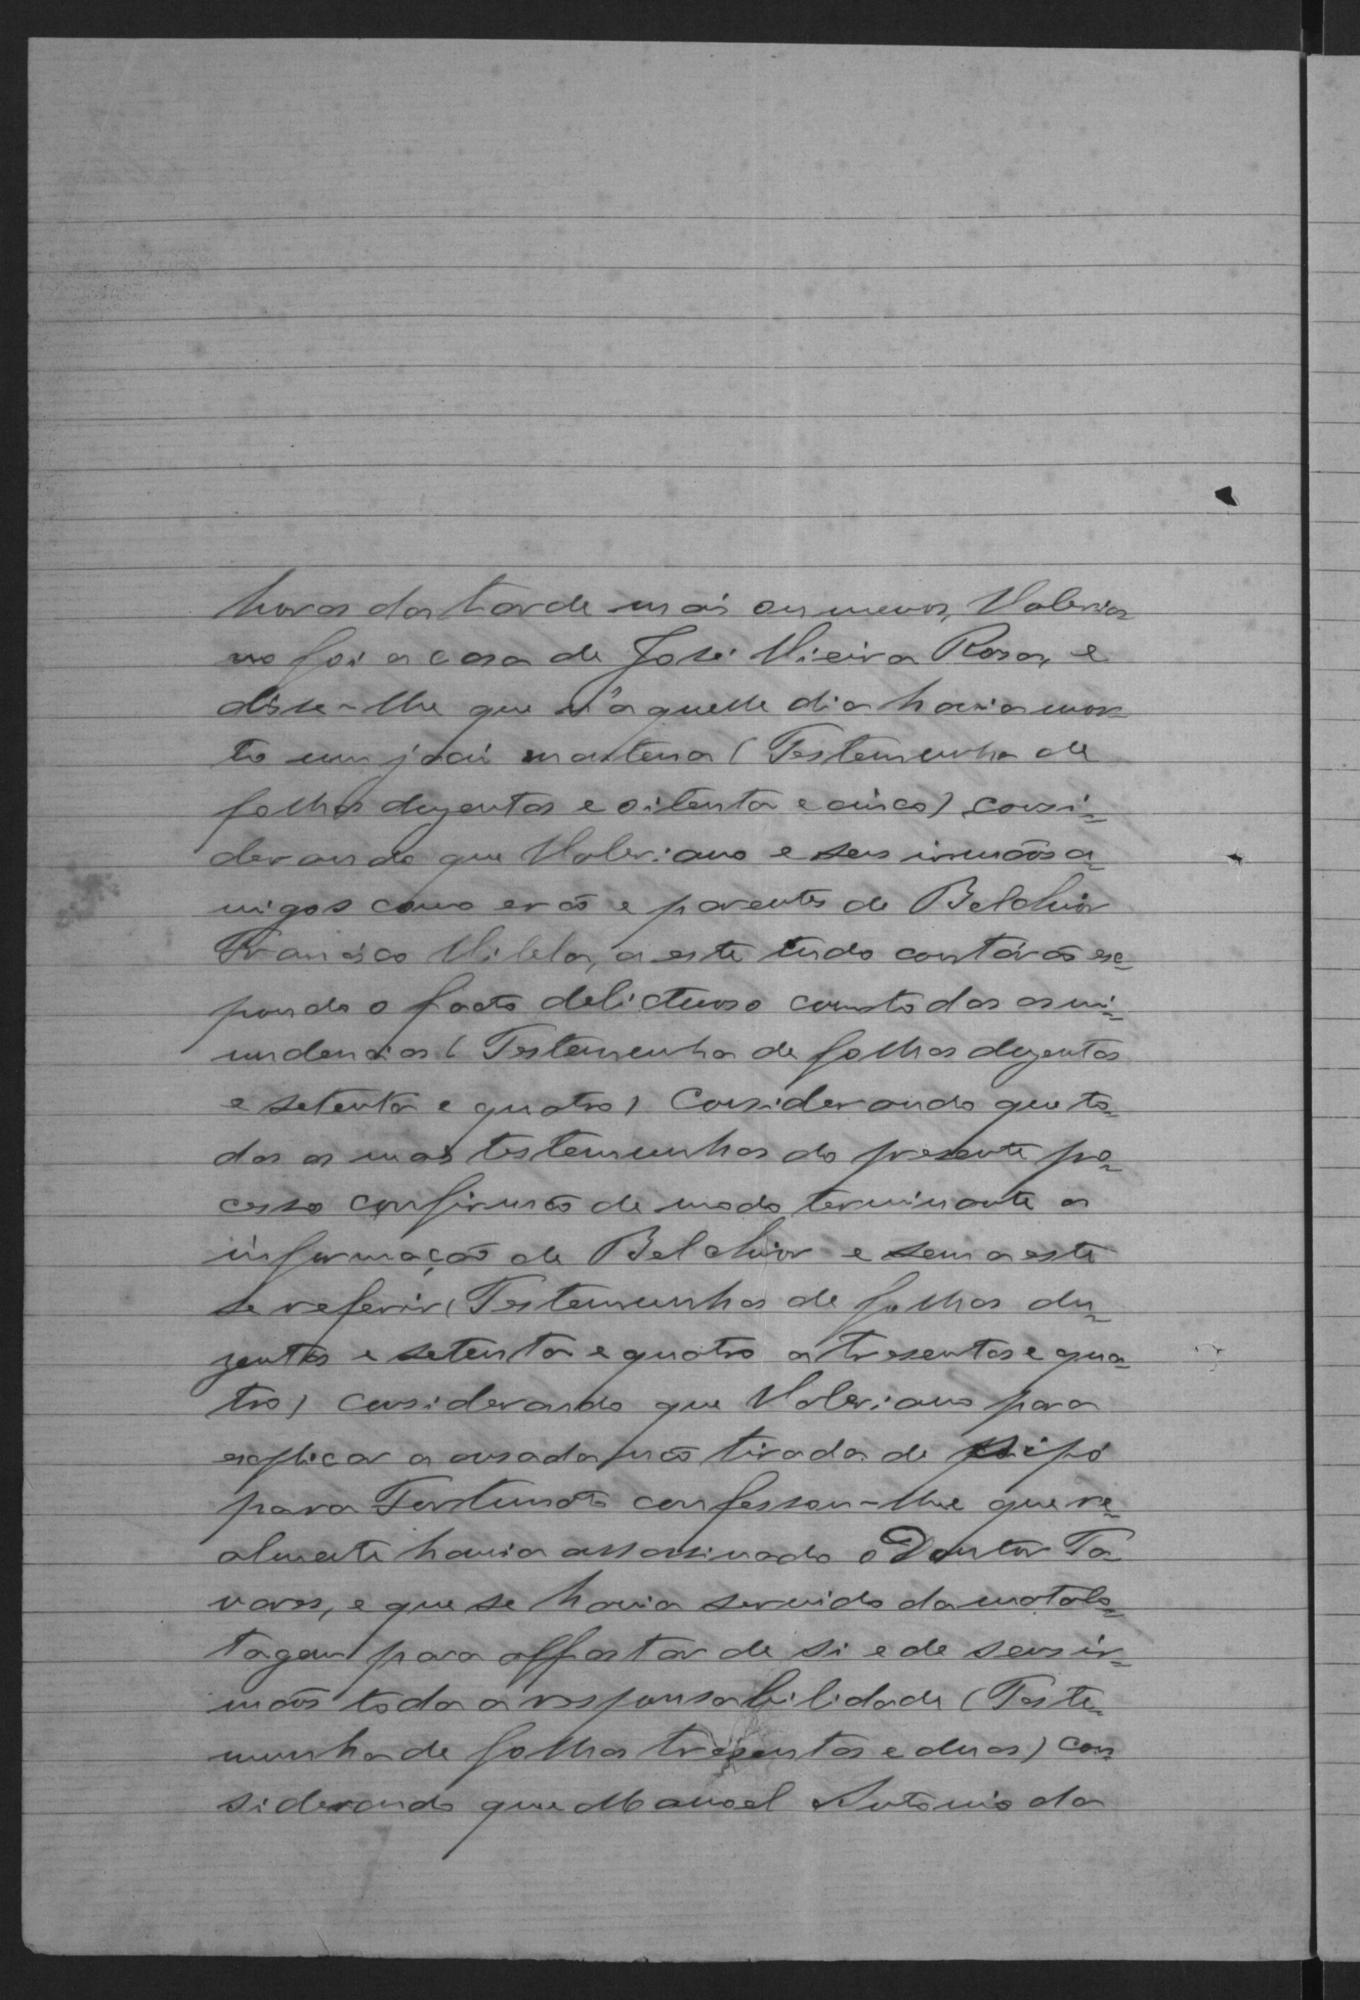 horas da tarde mais ou menos, Valeria
no foi a casa de José Vieira Rosa, e
disse-lhe que n'aquelle dia havia mor
to um jaú (Testemunha de
folhas duzentas e oitenta e cinco) consi=
derando que Valeriano e seus irmãos a=
migos como erão e parentes de Belchior
Francisco Vilela, a este tudo contárão ex=
pondo o facto delictuoso com todas as mi=
nudencias (Testemunha de folhas duzentas
e setenta e quatro) Considerando que to=
das as mais testemunhas do presente pro=
cesso confirmão de modo terminante a
informação de Belchior e sem a este
se referir (Testemunhas de folhas du=
zentas e setenta e quatro a tresentas e qua=
tro) considerando que Valeriano para
explicar a ousada tirada de sipó
para Fortunato confessou-lhe que re=
almente havia assassinado o Doutor Ta
vares, e que se havia servido da matalo=
tagem para affastar de si e de seus ir=
mãos toda a responsabilidade (Teste=
munha de folhas tresentas e duas) con=
siderando que Manoel Antonio da